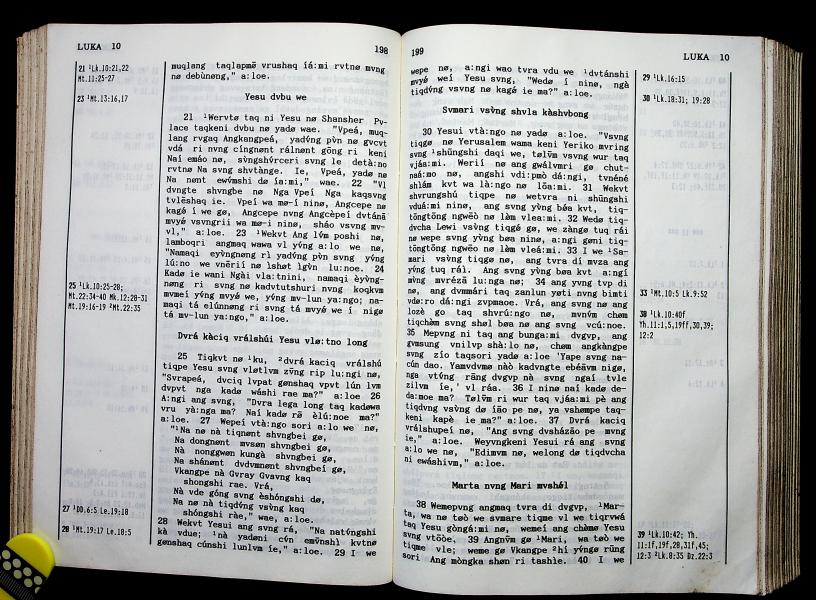 LUKA 10
198
21 ¹Lk.10:21,22
Mt.11:25-27
23 ¹Mt.13:16,17
25 ¹Lk.10:25-28;
Mt.22:34-40 Mk.12:28-31
Mt.19:16-19 ²Mt.22:35
27 ¹DD.6:5 Le.19:18
28 ¹Mt.19:17 Le.18:5
muqlang taqlapmē vrushaq íá:mi rvtnø mvng
nø debùnøng," a:loe.
Yesu dvbu we
21 ¹Wervtø taq ni Yesu nø Shansher Pv-
lace taqkeni dvbu nø yadø wae. "Vpeá, muq-
lang rvgaq Angkangpeá, yadv́ng pv̀n nø gvcvt
vdá ri nvng cíngnønt rálnønt gōng ri keni
Naí emáo nø, sv̀ngshv́rceri svng le detà:no
rvtnø Na svng shvtànge. Ie, Vpeá, yadø nø
Na nønt ewv́mshì dø ía:mi," wae. 22 "Vl
dvngte shvngbe nø Nga Vpeí Nga kaqsvng
tvlēshaq ie. Vpeí wa mø-í ninø, Angcepe nø
kagó í we gø, Angcepe nvng Angcèpeí dvtánā
mvyø̄ vsvngrìi wa mø-ì ninø, sháo vsvng mv-
vl," a:loe. 23 ¹Wekvt Ang lv́m poshì nø,
lamboqri angmaq wawa vl yv́ng a:lo we nø,
"Namaqi eyv̀ngnøng rì yadv́ng pv̀n svng yv́ng
lú:no we vnērií nø lshøt lgv̀n lu:noe. 24
Kadø ie wani Ngài vla:tnini, namaqi èyv̀ng-
nøng ri svng nø kadvtutshuri nvng koqkvm
mvmeí yv́ng mvyø̄ we, yv́ng mv-lun ya:ngo; na-
maqi tá elúnnøng ri svng tá mvyø̄ we í nigø
tá mv-lun ya:ngo," a:loe.
Dvrá kàciq vrálshúi Yesu vlø:tno long
25 Tiqkvt nø ¹ku, ²dvrá kaciq vrálshú
tiqpe Yesu svng vløtlvm zv̄ng rip lu:ngi nø,
"Svrapeá, dvciq lvpat gønshaq vpvt lún lvm
dvpvt nga kadø wáshi rae ma?" a:loe 26
A:ngi ang svng, "Dvra lega long taq kadøwa
vru yà:nga ma? Naí kadø rē èlú:noe ma?"
a:loe. 27 Wepeí vtà:ngo sori a:lo we nø,
"¹Na nø nà tiqnønt shvngbei gø,
Na dongnønt mvsøn shvngbei gø,
Nà nonggwøn kungà shvngbeí gø,
Na shánønt dvdvmnønt shvngbeí gø,
Vkangpe nà Gvray Gvsvng kaq
shongshi rae. Vrá,
Nà vde góng svng èshóngshì dø,
Na nø nà tiqdv́ng vsv̀ng kaq
shóngshì ràe," wae, a:loe.
28 Wekvt Yesui ang svng rá, "Na natv́ngshì
kà vdue; ¹nà yadøni cv́n emv̄nshì kvtnø
gønshaq cúnshì lunlvm íe," a:loe. 29 I we
199
LUKA 10
wepe nø, a:ngi wao tvra vdu we ¹dvtánshì
mvyø̄ weí Yesu svng, "Wedø í ninø, ngà
tiqdv́ng vsv̀ng nø kagé ie ma?" a:loe.
Svmari vsv̀ng shvla kàshvbong
30 Yesui vtà:ngo nø yadø a:loe. "Vsvng
tiqgø nø Yerusalem wama keni Yeriko mvring
svng ¹shúngshì daqi we, tølv̄m vsvng wur taq
vjáa:mi. Werií nø ang gwálvmri gø chut-
naá:mo nø, angshì vdi:pmò dá:ngi, tvnéné
shlám kvt wa là:ngo nø lōa:mi. 31 Wekvt
shvrungshú tiqpe nø wetvra ni shúngshì
vduá:mi ninø, ang svng yv̀ng bǿa kvt, tiq-
tōngtōng ngwēò nø làm vlea:mi. 32 Wedø tiq-
dvcha Lewi vsv̀ng tiqgé gø, we zàngø tuq rái
nø wepe svng yv̀ng bøa ninø, a:ngi gøni tiq-
tōngtōng ngwēo nø làm vleá:mi. 33 I we ¹Sa-
mari vsv̀ng tiqgø nø, ang tvra dí mvza ang
yv́ng tuq rál. Ang svng yv̀ng bøa kvt a:ngí
mv̀ng mvrézā lu:nga nø; 34 ang yvng tvp di
nø, ang dvmmári taq zanlun yøtí nvng bimti
vdø:ro dá:ngi zvpmaoe. Vrá, ang svng nø ang
lozè go taq shvrú:ngo nø, mvnv́m chøm
tiqchèm svng shøl bøa nø ang svng vcú:noe.
35 Mepvng ni taq ang bunga:mi dvgvp, ang
gvmsung vnilvp shà:lo nø, chøm angkàngpe
svng zío taqsori yadø a:loe 'Yape svng na-
cún dao. Yamvdvmø nàò kadvngte ebéāvm nigø,
nga vtv́ng rāng dvgvp nà svng ngaí tvle
zilvm íe,' vl ráa. 36 I ninø naí kadø de-
da:moe ma? Tølv̄m ri wur taq vjáa:mi pè ang
tiqdvng vsv̀ng dø ião pe nø, ya vshømpe taq-
keni kapè ie ma?" a:loe. 37 Dvrá kaciq
vrálshupeí nø, "Ang svng dvsházāo pe mvng
ie," a:loe. Weyvngkeni Yesui rá ang svng
a:lo we nø, "Edimvm nø, welong dø tiqdvcha
ni ewáshivm," a:loe.
Marta nvng Mari mvshøl
38 Wemepvng angmaq tvra di dvgvp, ¹Mar-
ta, wa nø tøò we svmare tiqme vl we tiqrvwá
taq Yesu gòngá:mi nø, wemeí ang chøm̀ø Yesu
svng vtōōe. 39 Angnv̄m gø ¹Mari, wa tøò we
tiqme vle; weme gø Vkangpe ²hí yv́ngø rūng
sori Ang mòngka shøn ri tashie. 40 I we
29 ¹Lk.16:15
30 ¹Lk.18:31; 19:28
33 ¹Mt.10:5 Lk.9:52
38 ¹Lk.10:40f
Yh.11:1,5,19ff,30,39;
12:2
39 ¹Lk.10:42; Yh.
11:1f,19f,28,31f,45;
12:3 ²Lk.8:35 Dz.22:3